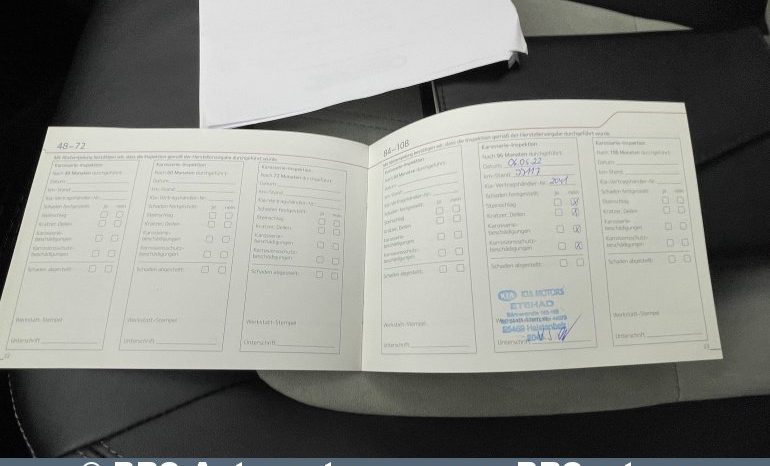 48–72
Mit Stempelung bestätigen wir, dass die Inspektion gemäß der Herstellervorgabe durchgeführt wurde.
Karosserie-Inspektion
nach 48 Monaten durchgeführt:
Datum:
km-Stand:
Kia-Vertragshändler-Nr.:
Schäden festgestellt: ja nein
Steinschlag
Kratzer, Dellen
Karosserie-
beschädigungen
Korrosionsschutz-
beschädigungen
Schäden abgestellt:
Werkstatt-Stempel
Unterschrift
Karosserie-Inspektion
nach 60 Monaten durchgeführt:
Datum:
km-Stand:
Kia-Vertragshändler-Nr.:
Schäden festgestellt: ja nein
Steinschlag
Kratzer, Dellen
Karosserie-
beschädigungen
Korrosionsschutz-
beschädigungen
Schäden abgestellt:
Werkstatt-Stempel
Unterschrift
Karosserie-Inspektion
nach 72 Monaten durchgeführt:
Datum:
km-Stand:
Kia-Vertragshändler-Nr.:
Schäden festgestellt: ja nein
Steinschlag
Kratzer, Dellen
Karosserie-
beschädigungen
Korrosionsschutz-
beschädigungen
Schäden abgestellt:
Werkstatt-Stempel
Unterschrift
84–108
Mit Stempelung bestätigen wir, dass die Inspektion gemäß der Herstellervorgabe durchgeführt wurde.
Karosserie-Inspektion
nach 84 Monaten durchgeführt:
Datum:
km-Stand:
Kia-Vertragshändler-Nr.:
Schäden festgestellt: ja nein
Steinschlag
Kratzer, Dellen
Karosserie-
beschädigungen
Korrosionsschutz-
beschädigungen
Schäden abgestellt:
Werkstatt-Stempel
Unterschrift
Karosserie-Inspektion
nach 96 Monaten durchgeführt:
Datum: 06.05.22
km-Stand:
Kia-Vertragshändler-Nr.: 2041
Schäden festgestellt: ja nein
Steinschlag
Kratzer, Dellen
Karosserie-
beschädigungen
Korrosionsschutz-
beschädigungen
Schäden abgestellt:
KIA KIA MOTORS
ETEHAD
Unterschrift
Karosserie-Inspektion
nach 108 Monaten durchgeführt:
Datum:
km-Stand:
Kia-Vertragshändler-Nr.:
Schäden festgestellt: ja nein
Steinschlag
Kratzer, Dellen
Karosserie-
beschädigungen
Korrosionsschutz-
beschädigungen
Schäden abgestellt:
Werkstatt-Stempel
Unterschrift